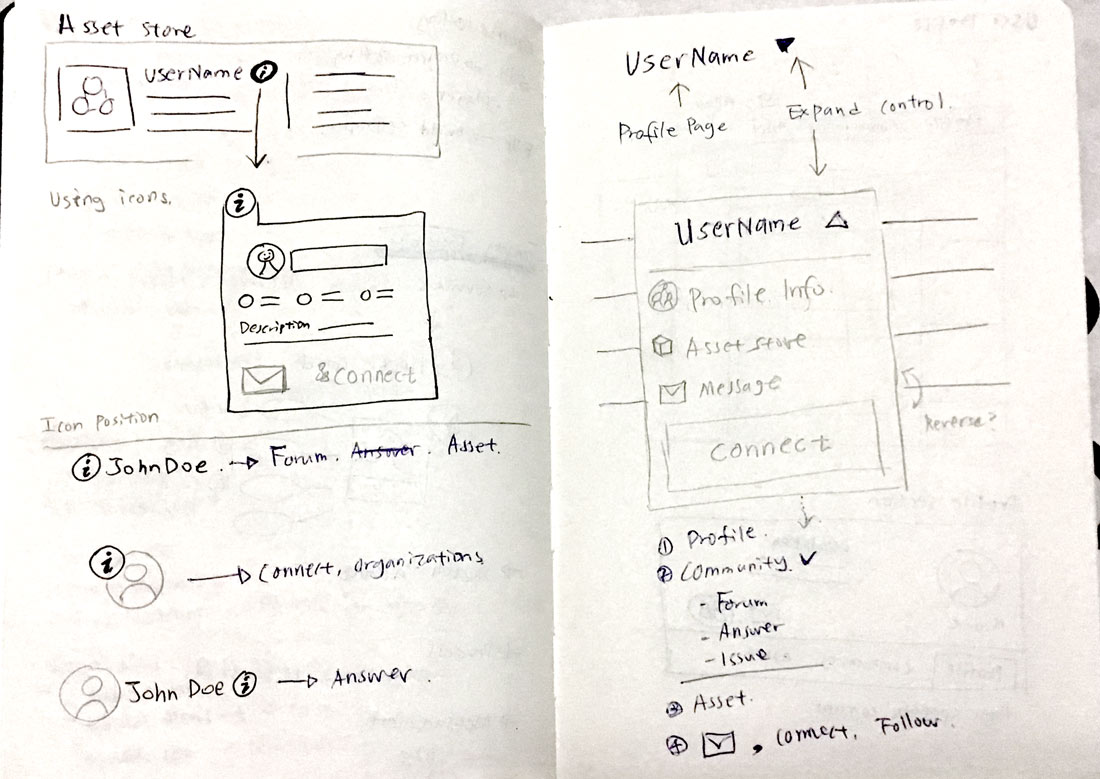 Asset store
UserName i
Using icons.
i
Description
& Connect
Icon Position
i John Doe. → Forum. Answer. Asset.
i → Connect, organizations
John Doe i → Answer.
UserName ▼
Profile Page
Expand control.
UserName △
Profile Info.
Asset store
Message
Connect
Reverse?
① Profile.
② Community. ✓
- Forum
- Answer
- Issue
③ Asset.
④ , Connect, Follow.